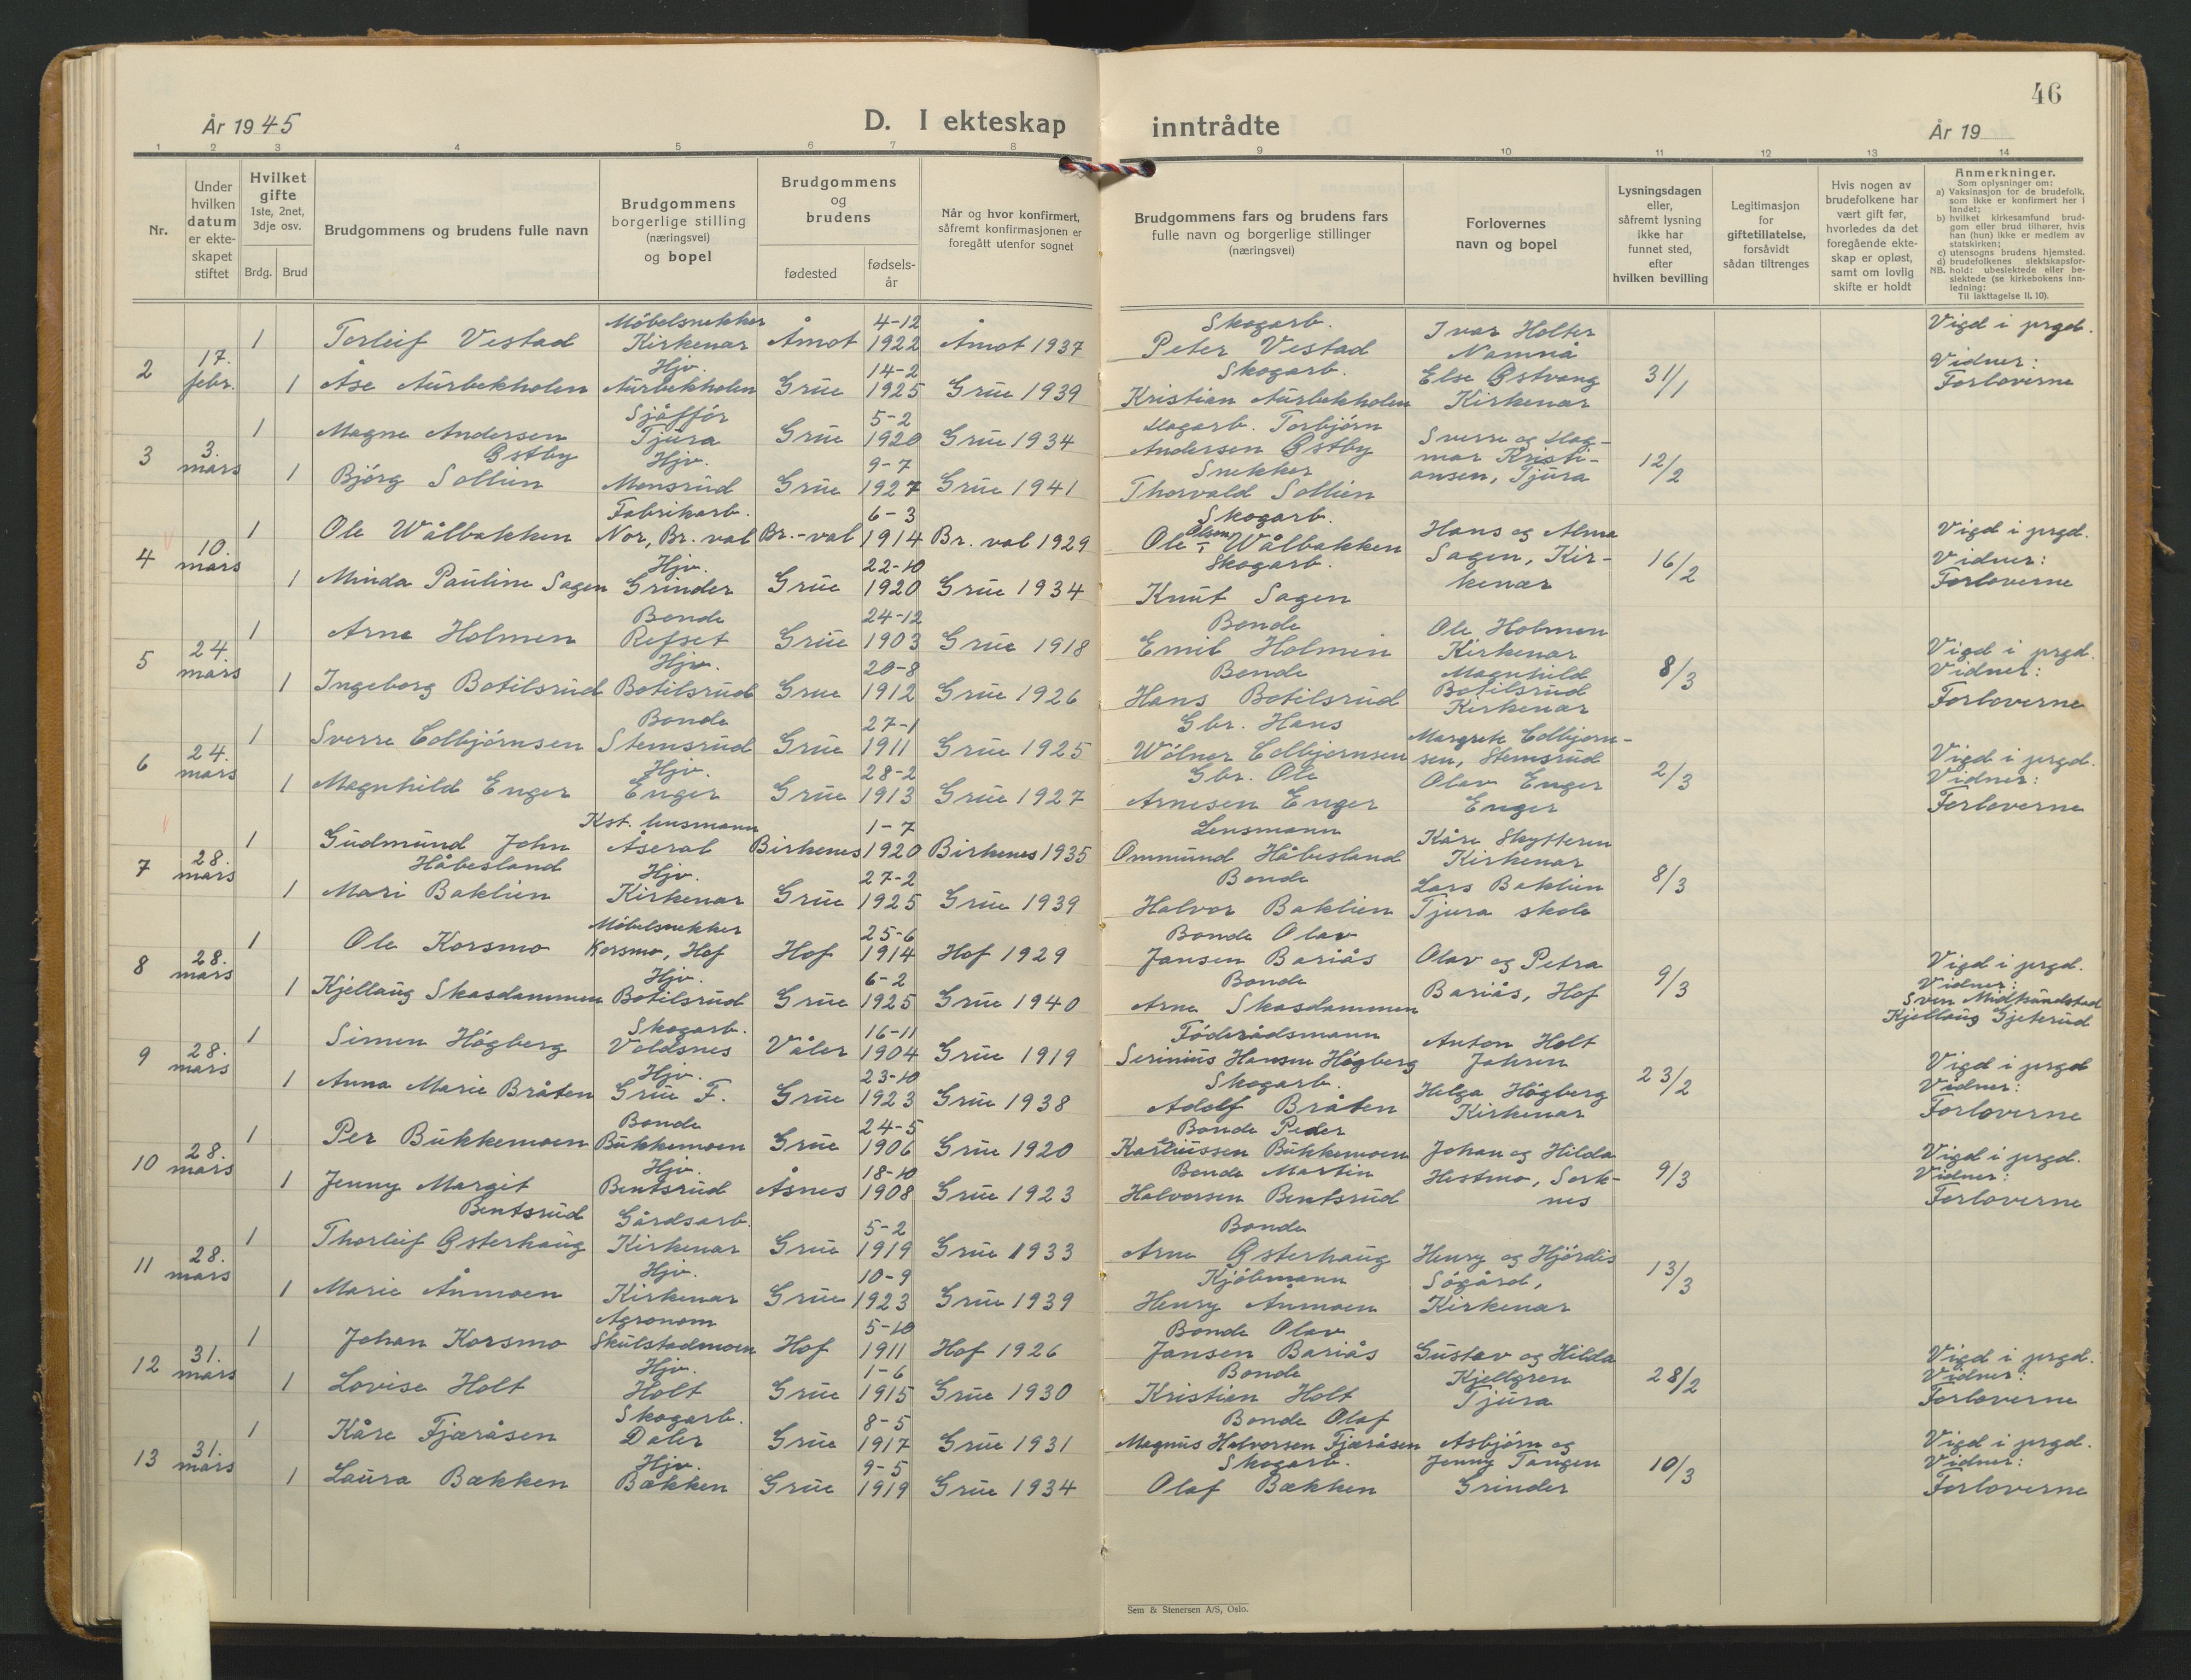 46
År 1945
D. I ekteskap inntrådte
År 19
1 2 3 4 5 6 7 8 9 10 11 12 13 14
Nr.
Under hvilken datum er ekteskapet stiftet
Hvilket gifte
1ste, 2net, 3dje osv.
Brdg. Brud
Brudgommens og brudens fulle navn
Brudgommens borgerlige stilling (næringsvei) og bopel
Brudgommens og brudens
fødested
fødselsår
Når og hvor konfirmert, såfremt konfirmasjonen er foregått utenfor sognet
Brudgommens fars og brudens fars fulle navn og borgerlige stillinger (næringsvei)
Forlovernes navn og bopel
Lysningsdagen eller, såfremt lysning ikke har funnet sted, efter hvilken bevilling
Legitimasjon for giftetillatelse, forsåvidt sådan tiltrenges
Hvis nogen av brudefolkene har vært gift før, hvorledes da det foregående ekteskap er opløst, samt om lovlig skifte er holdt
Anmerkninger.
Som oplysninger om:
a) Vaksinasjon for de brudefolk, som ikke er konfirmert her i landet;
b) hvilket kirkesamfund brudgom eller brud tilhører, hvis han (hun) ikke er medlem av statskirken;
c) utensogns brudens hjemsted.
d) brudefolkenes slektskapsforhold: ubeslektede eller beslektede (se kirkebokens innledning:
NB.
Til iakttagelse II, 10).
2 17. febr.
1 Torleif Vestad Möbelsnekker Kirkenær Åmot 4-12 1922 Åmot 1937 Skogarb. Peter Vestad Ivar Holter Namnå
1 Åse Aurbekholen Hjv. Aurbekholen Grue 14-2 1925 Grue 1939 Skogarb. Kristian Aurbekholen Else Østvang Kirkenær 31/1 Vigd i prgd. Vidner: Forloverne
3 3. mars
1 Magne Andersen Østby Sjåffør Tjura Grue 5-2 1920 Grue 1934 Skogarb. Torbjörn Andersen Østby Sverre og Dagmar Kristiansen, Tjura
1 Bjørg Sollien Hjv. Monsrud Grue 9-7 1927 Grue 1941 Snekker Thorvald Sollien 12/2
4 10. mars
1 Ole Wålbakken Fabrikarb. Nor, Br.val Br.-val 6-3 1914 Br. val 1929 Skogarb. Ole Olsen Wålbakken Hans og Alma Sagen, Kirkenær
1 Minda Pauline Sagen Hjv. Grinder Grue 22-10 1920 Grue 1934 Skogarb. Knut Sagen 16/2 Vigd i prgd. Vidner: Forloverne
5 24. mars
1 Arne Holmen Bonde Refset Grue 24-12 1903 Grue 1918 Bonde Emil Holmen Ole Holmen Kirkenær
1 Ingeborg Botilsrud Hjv. Botilsrud Grue 20-8 1912 Grue 1926 Bonde Hans Botilsrud Magnhild Botilsrud Kirkenær 8/3 Vigd i prgd. Vidner: Forloverne
6 24. mars
1 Sverre Colbjørnsen Bonde Stemsrud Grue 27-1 1911 Grue 1925 Gbr. Hans Wölner Colbjørnsen Margrete Colbjørnsen, Stemsrud
1 Magnhild Enger Hjv. Enger Grue 28-2 1913 Grue 1927 Gbr. Ole Arnesen Enger Olav Enger Enger 2/3 Vigd i prgd. Vidner: Forloverne
7 28. mars
1 Gudmund John Håbesland Kst. lensmann Åseral Birkenes 1-7 1920 Birkenes 1935 Lensmann Ommund Håbesland Kåre Skytteren Kirkenær
1 Mari Baklien Hjv. Kirkenær Grue 27-2 1925 Grue 1939 Bonde Halvor Baklien Lars Baklien Tjura skole 8/3
8 28. mars
1 Ole Korsmo Möbelsnekker Korsmo, Hof Hof 25-6 1914 Hof 1929 Bonde Olav Jansen Bariås Olav og Petra Bariås, Hof
1 Kjellaug Skasdammen Hjv. Botilsrud Grue 6-2 1925 Grue 1940 Bonde Arne Skasdammen 9/3 Vigd i prgd. Vidner: Sven Midthundstad Kjellaug Gjeterud
9 28. mars
1 Simen Högberg Skogarb. Voldsnes Våler 16-11 1904 Grue 1919 Föderådsmann Serinius Hansen Högberg Anton Holt
1 Anna Marie Bråten Hjv. Grue F. Grue 23-10 1923 Grue 1938 Skogarb. Adolf Bråten Helga Högberg Kirkenær 23/2 Vigd i prgd Vidner: Forloverne
10 28. mars
1 Per Bukkemoen Bonde Bukkemoen Grue 24-5 1906 Grue 1920 Bonde Peder Bukkemoen Johan og Hilda Hestmo, Sorknes
1 Jenny Margit Bentsrud Hjv. Bentsrud Åsnes 18-10 1908 Grue 1923 Bonde Martin Halvorsen Bentsrud 9/3 Vigd i prgd. Vidner: Forloverne
11 28. mars
1 Thorleif Østerhaug Gårdsarb. Kirkenær Grue 5-2 1919 Grue 1933 Bonde Arne Østerhaug Henry og Hjördis Sögård, Kirkenær
1 Marie Åmoen Hjv. Kirkenær Grue 10-9 1923 Grue 1939 Kjöbmann Henry Åmoen 13/3
12 31. mars
1 Johan Korsmo Agronom Skulstadmoen Hof 5-10 1911 Hof 1926 Bonde Olav Jansen Bariås Gustav og Hilda Kjellgren Tjura
1 Lovise Holt Hjv. Holt Grue 1-6 1915 Grue 1930 Bonde Kristian Holt 28/2 Vigd i prgd. Vidner: Forloverne
13 31. mars
1 Kåre Fjæråsen Skogarb. Daler Grue 8-5 1917 Grue 1931 Bonde Olaf Magnus Halvorsen Fjæråsen Asbjörn og Jenny Tangen Grinder
1 Laura Bækken Hjv. Bækken Grue 9-5 1919 Grue 1934 Skogarb. Olaf Bækken 10/3 Vigd i prgd. Vidner: Forloverne
Sem & Stenersen A/S, Oslo.